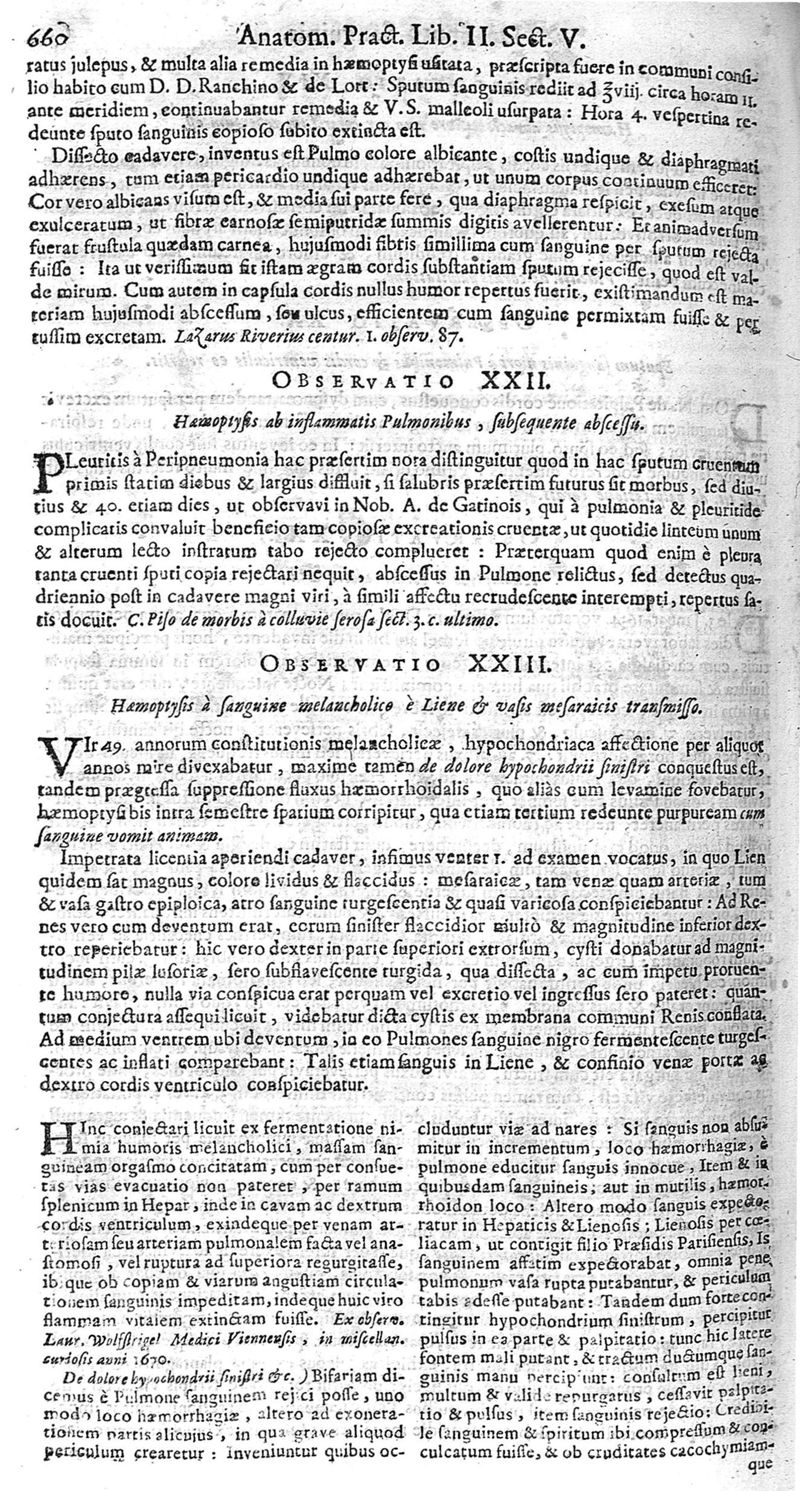 660 Anatom. Pract. Lib. II. Sect. V.
ratus julepus, & multa alia remedia in hæmoptysi usitata, præscripta fuere in communi consi-
lio habito cum D. D. Ranchino & de Lort: Sputum sanguinis rediit ad ℥viij. circa horam 11.
ante meridiem, continuabantur remedia & V.S. malleoli usurpata: Hora 4. vespertina re-
deunte sputo sanguinis copioso subito extincta est.
Dissecto cadavere, inventus est Pulmo colore albicante, costis undique & diaphragmati
adhærens, tum etiam pericardio undique adhærebat, ut unum corpus continuum efficeret:
Cor vero albicans visum est, & media sui parte fere, qua diaphragma respicit, exesum atque
exulceratum, ut fibræ carnosæ semiputridæ summis digitis avellerentur: Et animadversum
fuerat frustula quædam carnea, hujusmodi fibris simillima cum sanguine per sputum rejecta
fuisse: Ita ut verissimum sit istam ægram cordis substantiam sputum rejecisse, quod est val-
de mirum. Cum autem in capsula cordis nullus humor repertus fuerit, existimandum est ma-
teriam hujusmodi abscessum, seu ulcus, efficientem cum sanguine permixtam fuisse & per
tussim excretam. Lazarus Riverius centur. 1. observ. 87.
OBSERVATIO XXII.
Hæmoptysis ab inflammatis Pulmonibus, subsequente abscessu.
PLeuritis à Peripneumonia hac præsertim nota distinguitur quod in hac sputum cruentum
primis statim diebus & largius diffluit, si salubris præsertim futurus sit morbus, sed diu-
tius & 40. etiam dies, ut observavi in Nob. A. de Gatinois, qui à pulmonia & pleuritide
complicatis convaluit beneficio tam copiosæ excreationis cruentæ, ut quotidie linteum unum
& alterum lecto instratum tabo rejecto complueret: Præterquam quod enim è pleura
tanta cruenti sputi copia rejectari nequit, abscessus in Pulmone relictus, sed detectus qua-
driennio post in cadavere magni viri, à simili affectu recrudescente interempti, repertus sa-
tis docuit. C. Piso de morbis à colluvie serosa sect. 3. c. ultimo.
OBSERVATIO XXIII.
Hæmoptysis à sanguine melancholico è Liene & vasis mesaraicis transmisso.
VIr 49. annorum constitutionis melancholicæ, hypochondriaca affectione per aliquot
annos mire divexabatur, maxime tamen de dolore hypochondrii sinistri conquestus est,
tandem prægressa suppressione fluxus hæmorrhoidalis, quo aliàs cum levamine fovebatur,
hæmoptysi bis intra semestre spatium corripitur, qua etiam tertium redeunte purpuream cum
sanguine vomit animam.
Impetrata licentia aperiendi cadaver, infimus venter 1. ad examen vocatus, in quo Lien
quidem sat magnus, colore lividus & flaccidus: mesaraicæ, tam venæ quam arteriæ, tum
& vasa gastro epiploica, atro sanguine turgescentia & quasi varicosa conspiciebantur: Ad Re-
nes vero cum deventum erat, eorum sinister flaccidior multò & magnitudine inferior dex-
tro reperiebatur: hic vero dexter in parte superiori extrorsum, cysti donabatur ad magni-
tudinem pilæ lusoriæ, sero subflavescente turgida, qua dissecta, ac cum impetu protuen-
te humore, nulla via conspicua erat perquam vel excretio vel ingressus sero pateret: quan-
tum conjectura assequi licuit, videbatur dicta cystis ex membrana communi Renis conflata.
Ad medium ventrem ubi deventum, in eo Pulmones sanguine nigro fermentescente turges-
centes ac inflati comparebant: Talis etiam sanguis in Liene, & confinio venæ portæ ac
dextro cordis ventriculo conspiciebatur.
HInc conjectari licuit ex fermentatione ni-
mia humoris melancholici, massam san-
guineam orgasmo concitatam, cum per consue-
tas vias evacuatio non pateret, per ramum
splenicum in Hepar, inde in cavam ac dextrum
cordis ventriculum, exindeque per venam ar-
teriosam seu arteriam pulmonalem facta vel ana-
stomosi, vel ruptura ad superiora regurgitasse,
ibique ob copiam & viarum angustiam circula-
tionem sanguinis impeditam, indeque huic viro
flammam vitalem extinctam fuisse. Ex observ.
Laur. Wolfstrigel Medici Viennensis, in miscellan.
curiosis anni 1670.
De dolore hypochondrii sinistri &c.) Bifariam di-
cemus è Pulmone sanguinem rejici posse, uno
modo loco hæmorrhagiæ, altero ad exonera-
tionem partis alicujus, in qua grave aliquod
periculum crearetur: Inveniuntur quibus oc-
cluduntur viæ ad nares: Si sanguis non absu-
mitur in incrementum, loco hæmorrhagiæ, è
pulmone educitur sanguis innocue, Item & in
quibusdam sanguineis; aut in mutilis, hæmor-
rhoidon loco: Altero modo sanguis expecto-
ratur in Hepaticis & Lienosis; Lienosis per cœ-
liacam, ut contigit filio Præsidis Parisiensis, Is
sanguinem affatim expectorabat, omnia pene
pulmonum vasa rupta putabantur, & periculum
tabis adesse putabant: Tandem dum forte con-
tingitur hypochondrium sinistrum, percipitur
pulsus in ea parte & palpitatio: tunc hic latere
fontem mali putant, & tractum ductumque san-
guinis manu percipiunt: consultum est lieni,
multum & valide repurgatus, cessavit palpita-
tio & pulsus, item sanguinis rejectio: Credibi-
le sanguinem & spiritum ibi compressum & con-
culcatum fuisse, & ob cruditates cacochymiam-
que